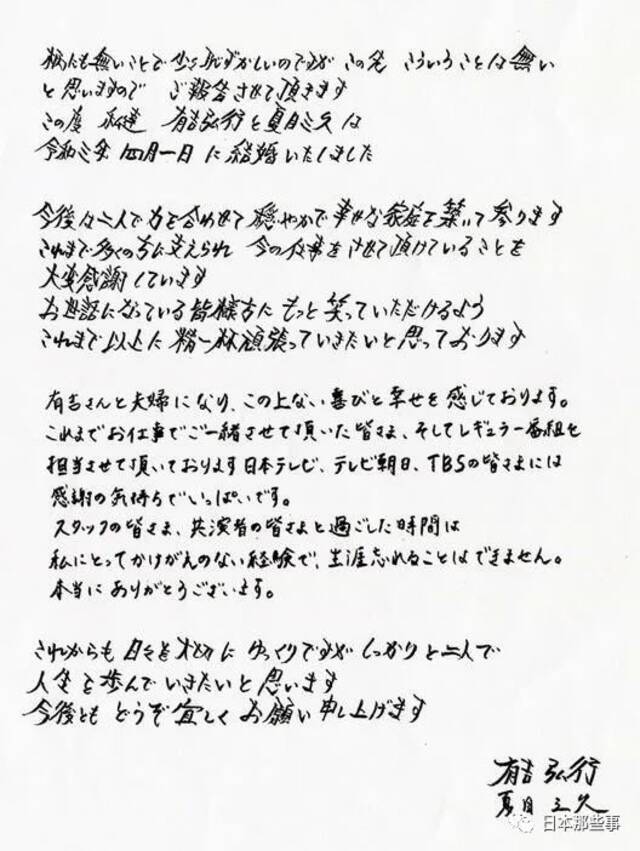 柄にも無いことで少々恥ずかしいのですが この先 こういうことは無い
と思いますので ご報告させて頂きます
この度 私達 有吉弘行と夏目三久は
令和三年 四月一日 に結婚いたしました
今後は二人で力を合わせて 穏やかで幸せな家庭を築いて参ります
これまで多くの方に支えられ 今の仕事をさせて頂けていることを
大変感謝しています
お世話になっている皆様方に もっと笑っていただけるよう
これまで以上に精一杯頑張っていきたいと思っております
有吉さんと夫婦になり、この上ない喜びと幸せを感じております。
これまでお仕事でご一緒させて頂いた皆さま、そしてレギュラー番組を
担当させて頂いております日本テレビ、テレビ朝日、TBSの皆さまには
感謝の気持ちでいっぱいです。
スタッフの皆さま、共演者の皆さまと過ごした時間は
私にとってかけがえのない経験で、生涯忘れることはできません。
本当にありがとうございます。
これからも 日々を大切に ゆっくりですが しっかりと二人で
人生を歩んでいきたいと思います
今後とも どうぞ宜しく お願い申し上げます
有吉弘行
夏目三久
日本那些事